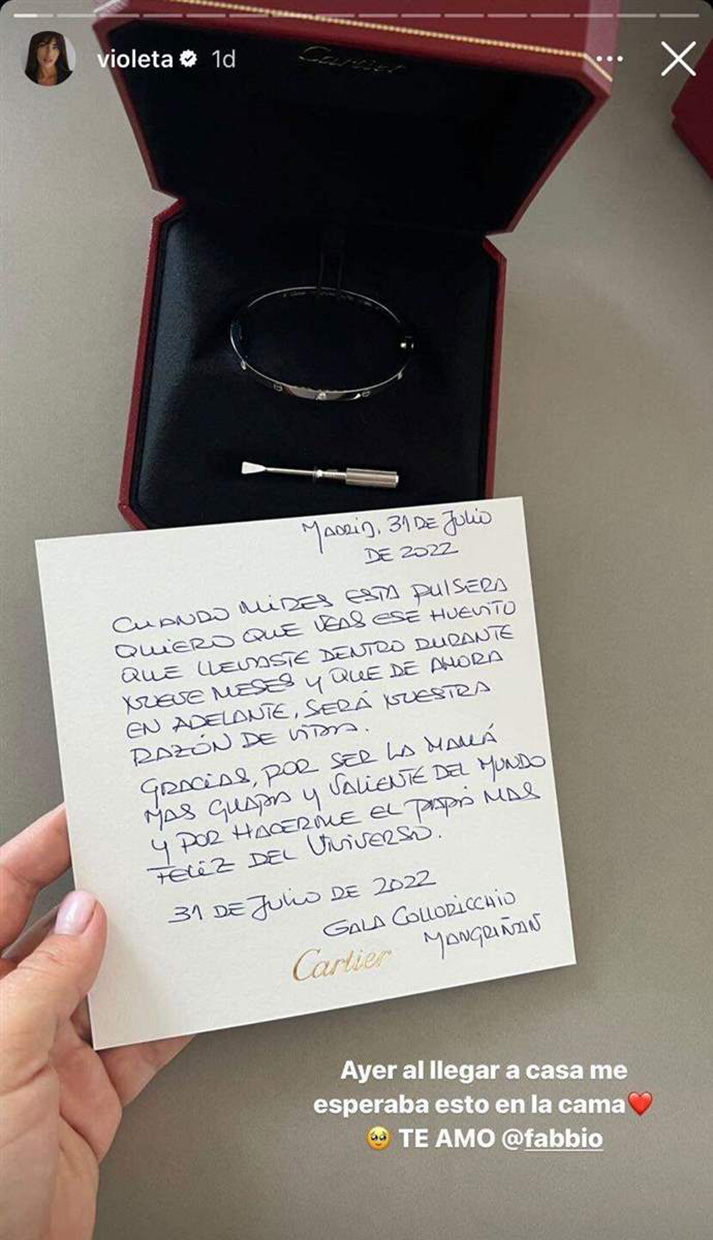 violeta 1d
Cartier
MADRID, 31 DE JULIO
DE 2022
CUANDO MIRES ESTA PULSERA
QUIERO QUE VEAS ESE HUEVITO
QUE LLEVASTE DENTRO DURANTE
NUEVE MESES Y QUE DE AHORA
EN ADELANTE, SERÁ NUESTRA
RAZÓN DE VIDA.
GRACIAS, POR SER LA MAMÁ
MAS GUAPA Y VALIENTE DEL MUNDO
Y POR HACERME EL PAPÁ MAS
FELIZ DEL UNIVERSO.
31 DE JULIO DE 2022
GALA COLLORICCHIO
MANGRIÑÁN
Cartier
Ayer al llegar a casa me
esperaba esto en la cama❤️
🥹 TE AMO @fabbio